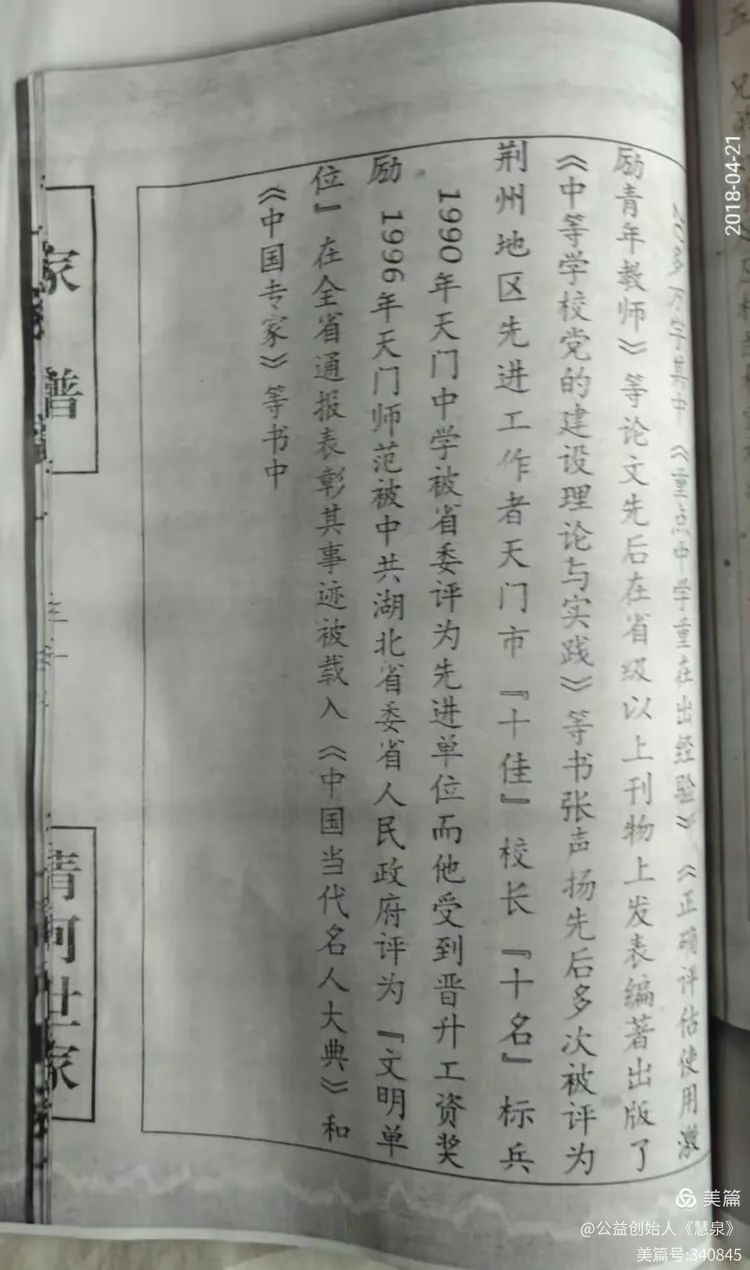 20多万字其中《重点中学重在出经验》《正确评估使用激
励青年教师》等论文先后在省级以上刊物上发表编著出版了
《中等学校党的建设理论与实践》等书张声扬先后多次被评为
荆州地区先进工作者天门市『十佳』校长『十名』标兵
1990年天门中学被省委评为先进单位而他受到晋升工资奖
励 1996年天门师范被中共湖北省委省人民政府评为『文明单
位』在全省通报表彰其事迹被载入《中国当代名人大典》和
《中国专家》等书中
家谱
清河世家
2018-04-21
美篇
@公益创始人《慧泉》
美篇号:340845